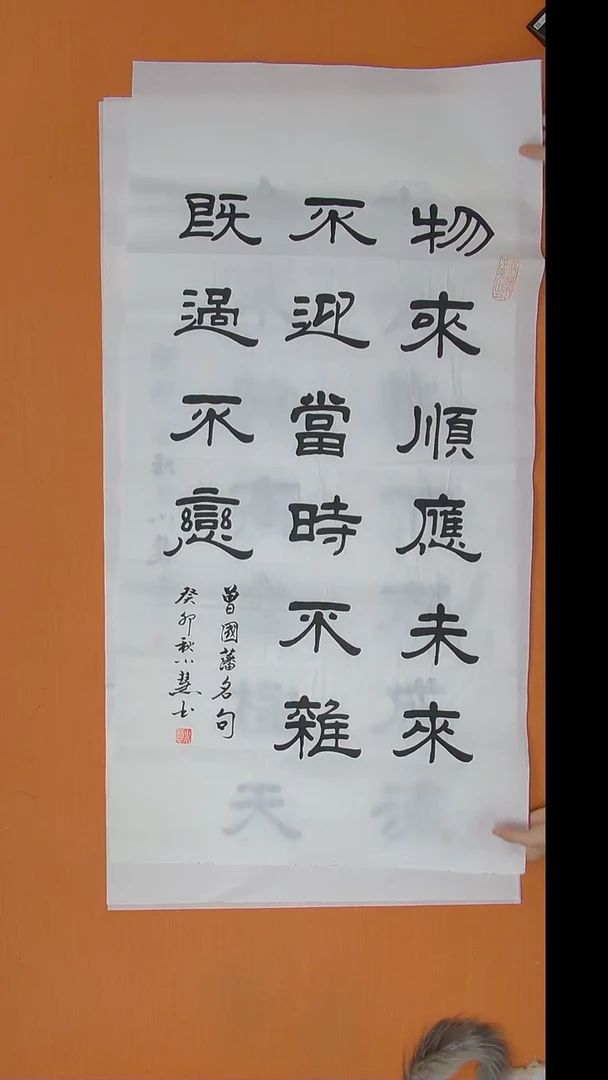 物來順應未來
不迎當時不雜
既過不戀
曾國藩名句
癸卯秋小慧书